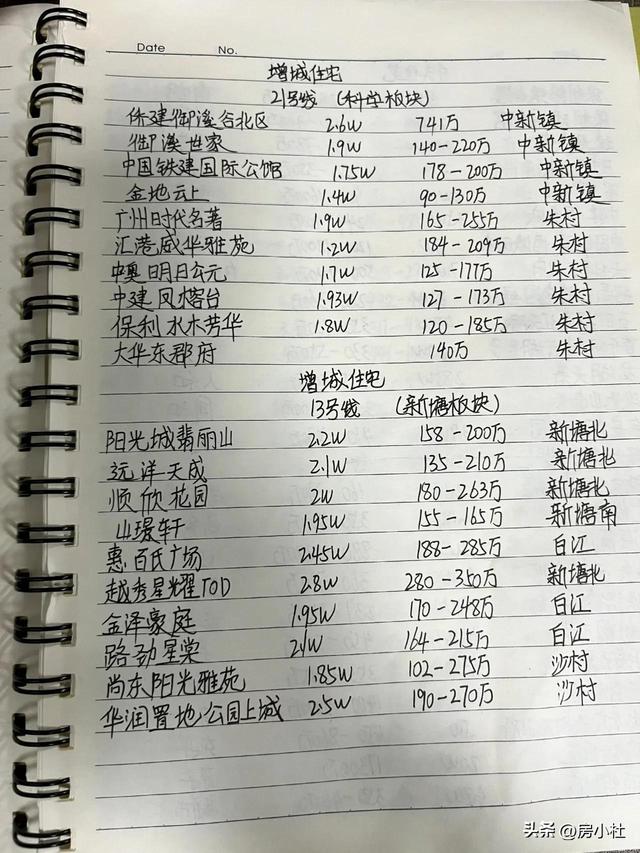 Date No.
增城住宅
21号线 (科学板块)
保建御溪谷北区 2.6W 741万 中新镇
御溪世家 1.9W 140-220万 中新镇
中国铁建国际公馆 1.75W 178-200万 中新镇
金地云上 1.4W 90-130万 中新镇
广州时代名著 1.9W 165-255万 朱村
汇港威华雅苑 1.2W 184-209万 朱村
中奥明日公元 1.7W 125-177万 朱村
中建凤榕台 1.93W 127-173万 朱村
保利水木芳华 1.8W 120-185万 朱村
大华东郡府 140万 朱村
增城住宅
13号线 (新塘板块)
阳光城翡丽山 2.2W 158-200万 新塘北
远洋天成 2.1W 135-210万 新塘北
顺欣花园 2W 180-263万 新塘北
山璟轩 1.95W 155-165万 新塘南
惠百氏广场 2.45W 188-285万 白江
越秀星耀TOD 2.8W 280-350万 新塘北
金泽豪庭 1.95W 170-248万 白江
路劲星棠 2.1W 164-215万 白江
尚东阳光雅苑 1.85W 102-275万 沙村
华润置地公园上城 2.5W 190-270万 沙村
头条 @房小社